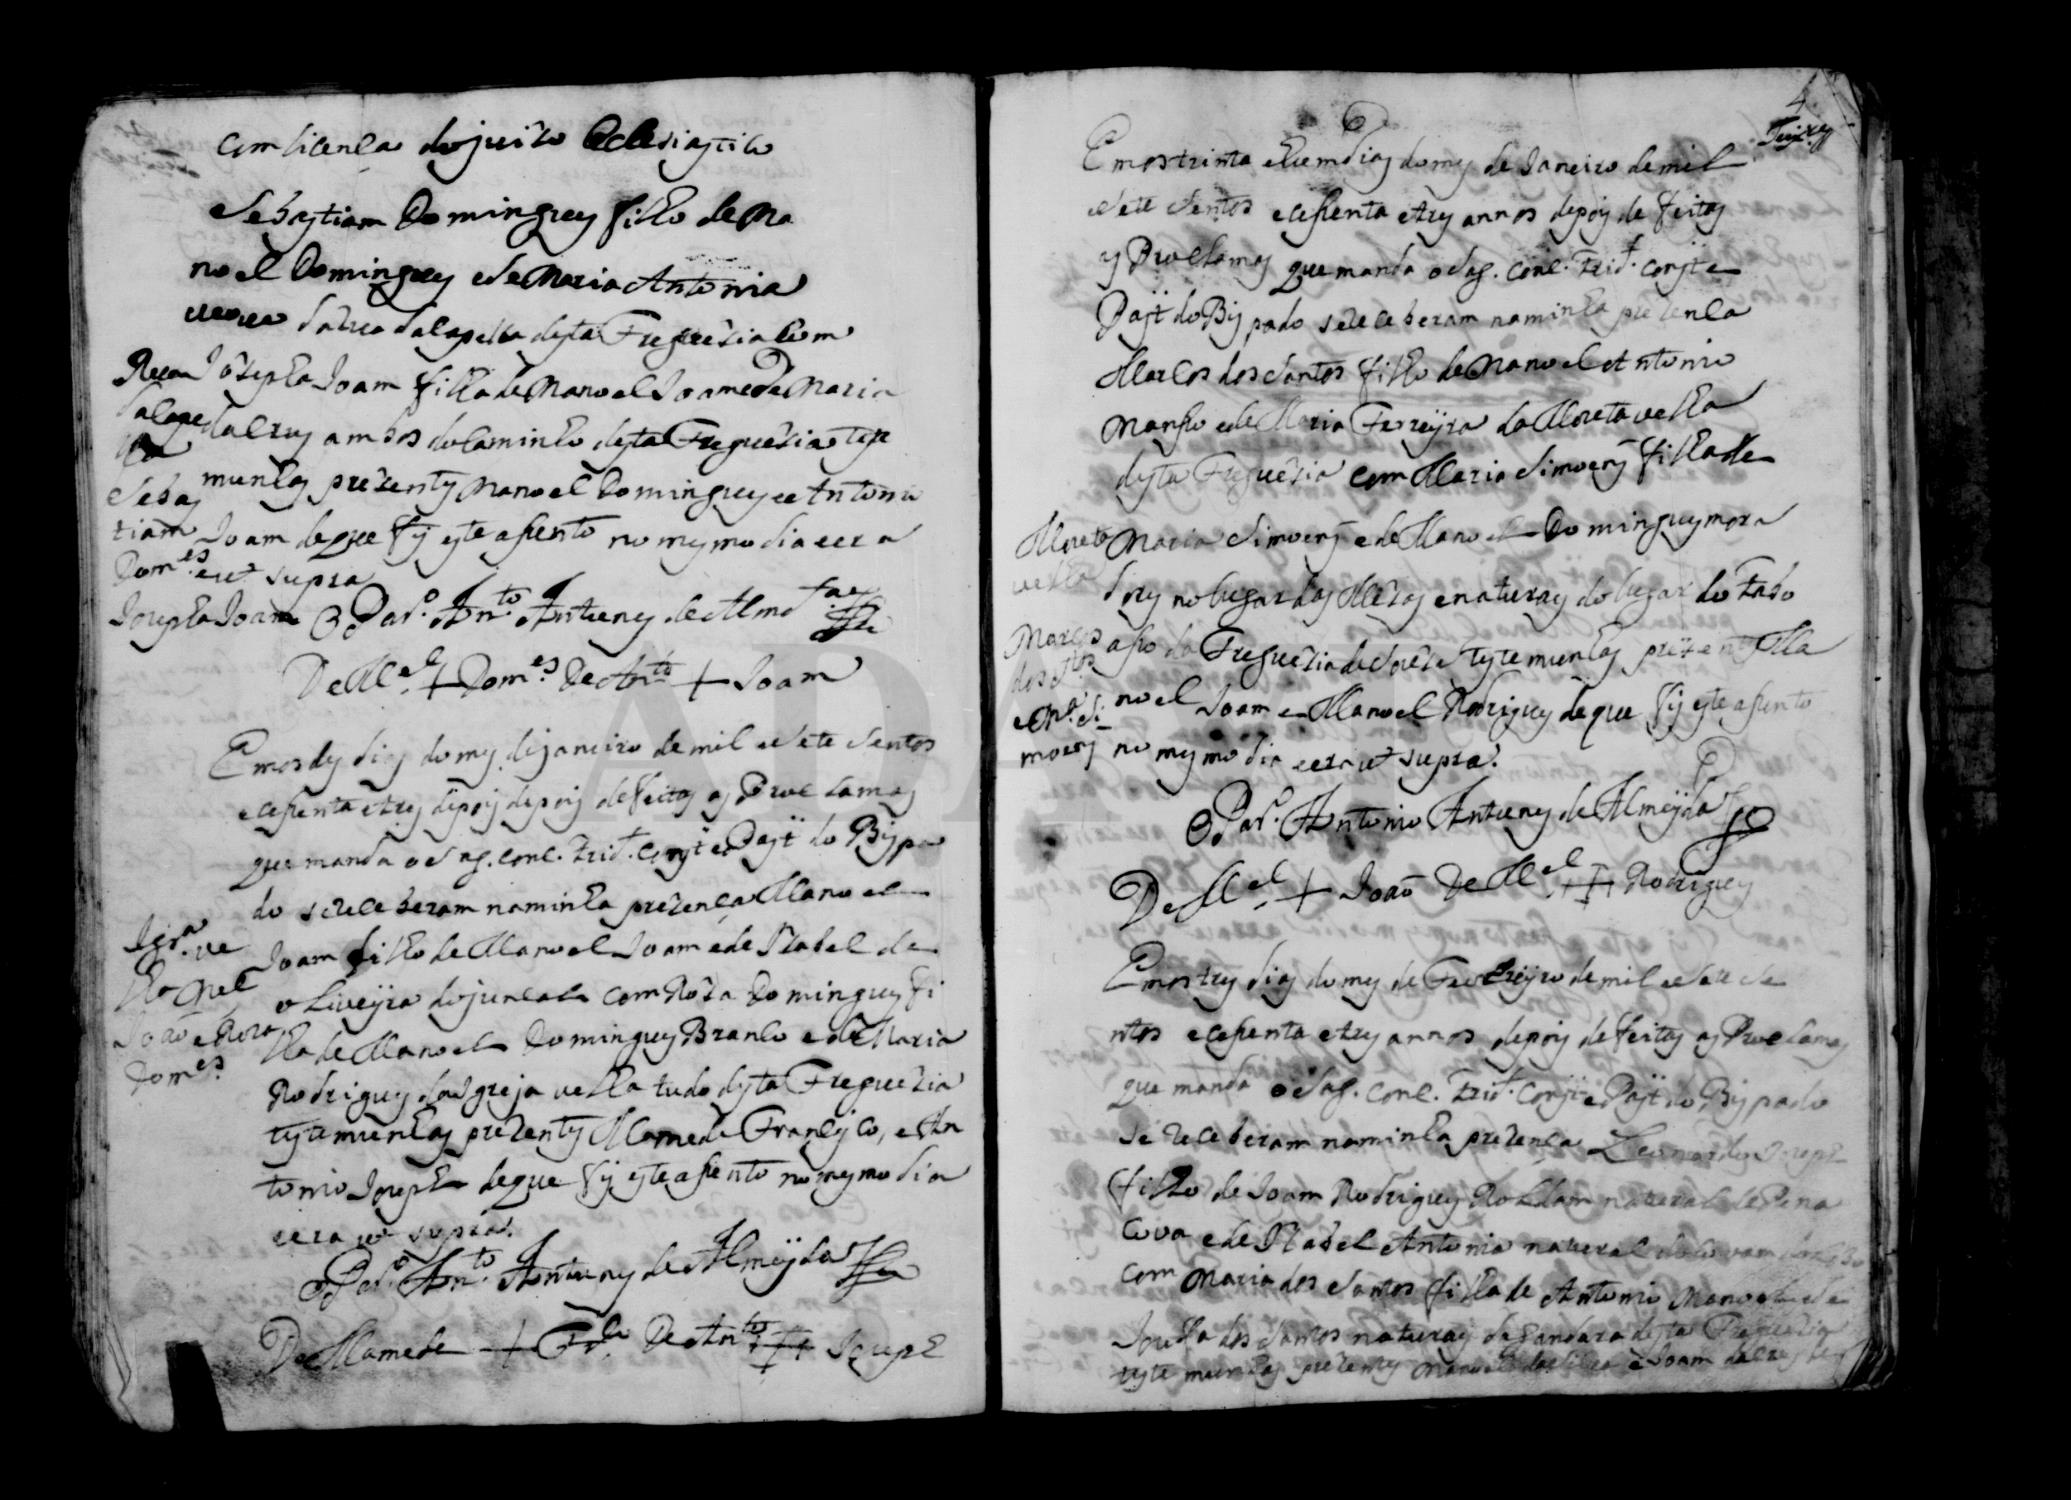 com licenca do juizo Eccleziastico
Sebastiam Domingues filho de Ma
noel Domingues e de Maria Antonia
veuva da rua da Capella desta Freguezia com
Jozepha Joam filha de Manoel Joam e de Maria
da Crus ambos do Caminho desta Freguezia teste
munhas prezentes Manoel Domingues e Antonio
Joam de que fis este asento no mesmo dia e era
ut supra
O Par.º Ant.to Antunes de Almd.a
De M.el + Dom.es De Ant.to + Joam
Rua
da Cape
lla
Sebas
tiam
Dom.es e
Josepha Joam
Em os des dias do mes de janeiro de mil e sete sentos
e cesenta e tres depois depois de feitas as Proclamas
que manda o Sag. Conc. Trid. Const. e Past. do Bispa
do se receberam na minha prezença Manoel
Joam filho de Manoel Joam e de Izabel de
oliveijra do juncal com Roza Domingues fi
lha de Manoel Domingues Branco e de Maria
Rodrigues da Igreja velha tudo desta Freguezia
testemunhas prezentes Mamede Francisco, e An
tonio Joseph de que fis este asento no mesmo dia
e era ut supra.
O Par.º Ant.to Antunes de Almeijda
De Mamede + Fr.co De Ant.to + Joseph
Igr.a ve
lha M.el
Joaõ e Roza
Dom.es
4
Em os trinta e hum dias do mes de Janeiro de mil
e sete sentos e cesenta e tres annos depois de feitas
as Proclamas que manda o Sag. Conc. Trid. Const. e
Past. do Bispado se receberam na minha prezenca
Marcos dos Santos filho de Manoel Antonio
Manso e de Maria Ferreijra da Moreta velha
desta Freguezia com Maria Simoens filha de
Maria Simoens e de Manoel Domingues mora
dores no lugar das Mezas e naturas do lugar do
da Freguezia de testemunhas prezentes Ma
noel Joam e Manoel Rodrigues de que fis este asento
no mesmo dia e era ut supra.
O Par.º Antonio Antunes de Almeijda
De M.el + Joaõ De M.el + Rodrigues
Moreta
velha
Marcos
dos S.tos
e M.a Si
moens
Em os tres dias do mes de Fevereijro de mil e sete se
ntos e cesenta e tres annos depois de feitas as Proclamas
que manda o Sag. Conc. Trid. Const. e Past. do Bispado
se receberam na minha prezença Leonardo Joseph
filho de Joam Rodrigues Roldam natural de Pena
cova e de Izabel Antonia natural
com Maria dos Santos filha de Antonio Manoel e de
Josepha dos Santos naturas da Gandara desta Freguezia
testemunhas prezentes Manoel da Silva e Joam